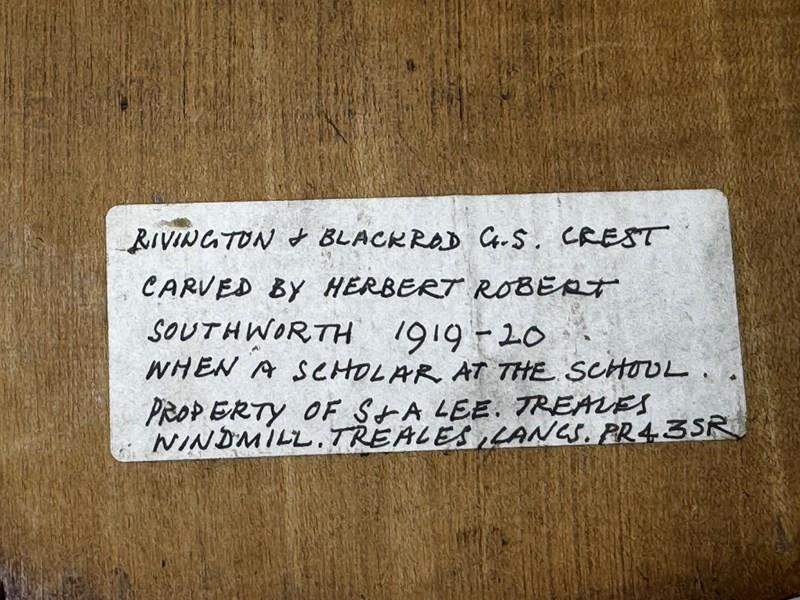 RIVINGTON & BLACKROD G.S. CREST
CARVED BY HERBERT ROBERT
SOUTHWORTH 1919-20
WHEN A SCHOLAR AT THE SCHOOL.
PROPERTY OF S & A LEE. TREALES
WINDMILL. TREALES, LANCS. PR4 3SR